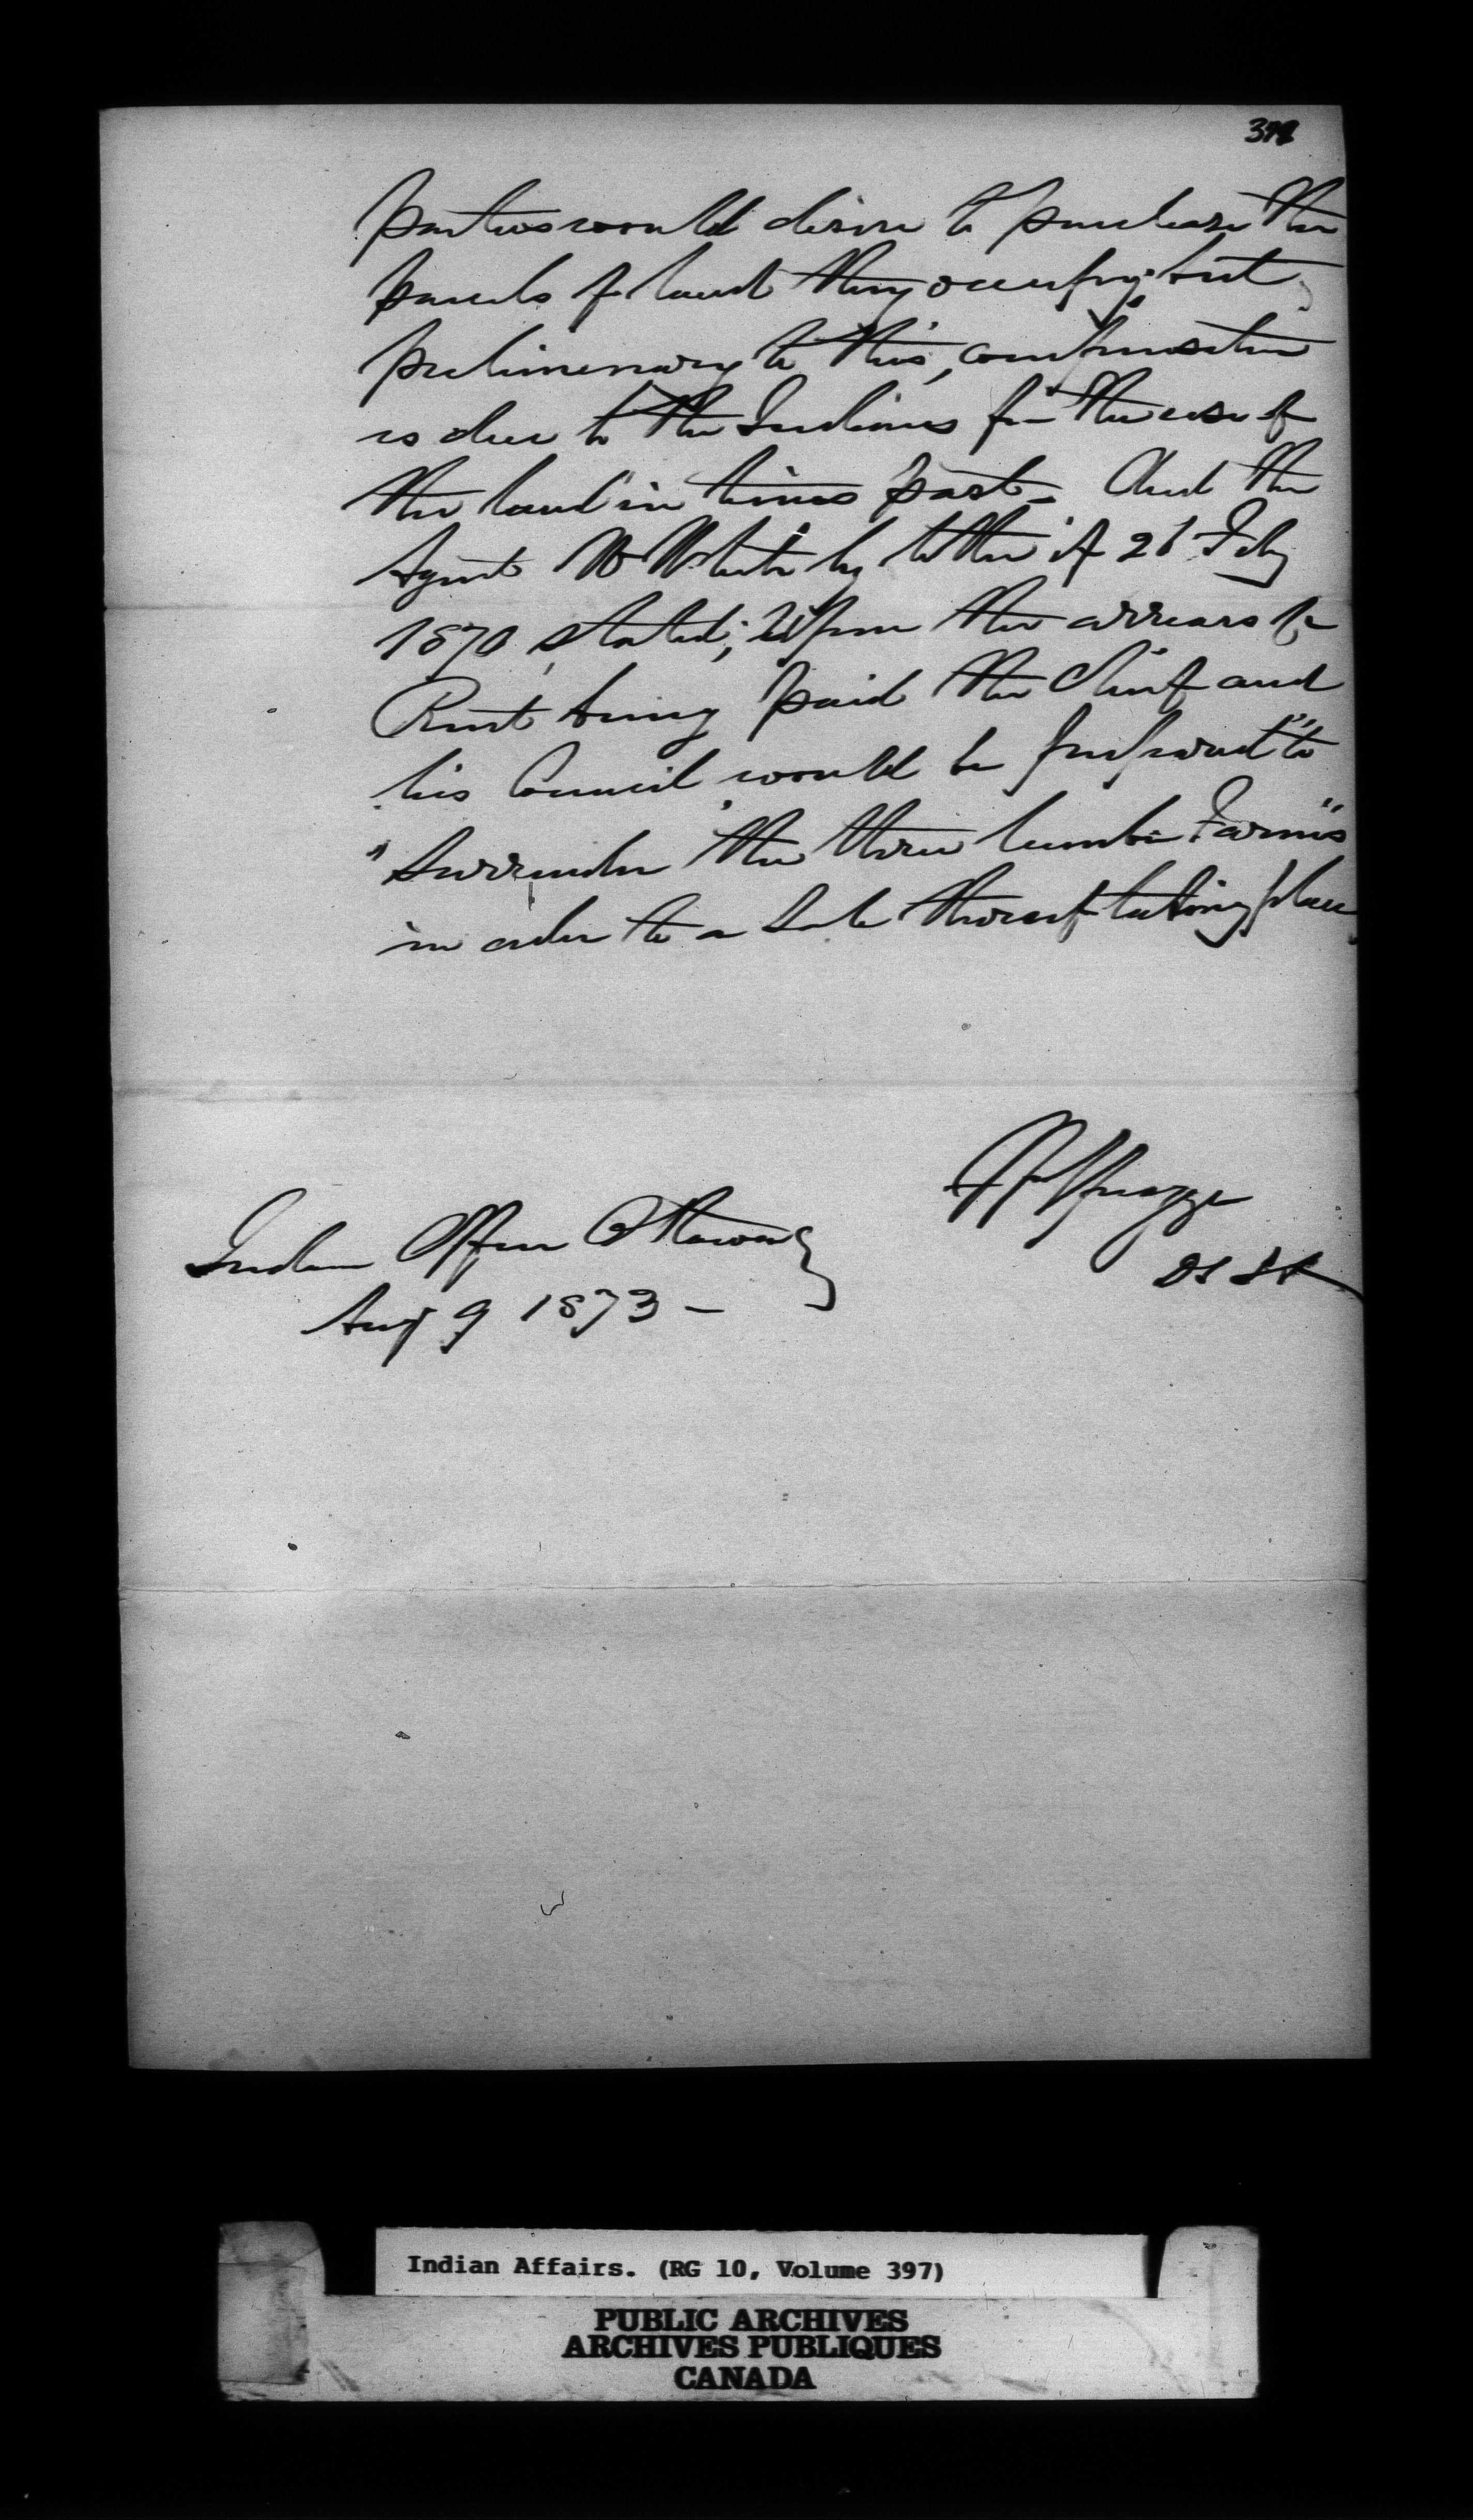 parties would desire to purchase the
parcels of land they occupy; but,
prelimenary to this, compensation
is due to the Indians for the use of
the land in times past. And the
Agent by letter of 21 Feby
1870, stated; Upon the arrears of
Rent being paid the Chief and
his Council would be prepared "to
"surrender the three lumber Farms"
in order to a sale thereof taking place
Spragge
DS
Indian Office Ottawa
Aug 9 1873 -
Indian Affairs. (RG 10, Volume 397)
PUBLIC ARCHIVES
ARCHIVES PUBLIQUES
CANADA